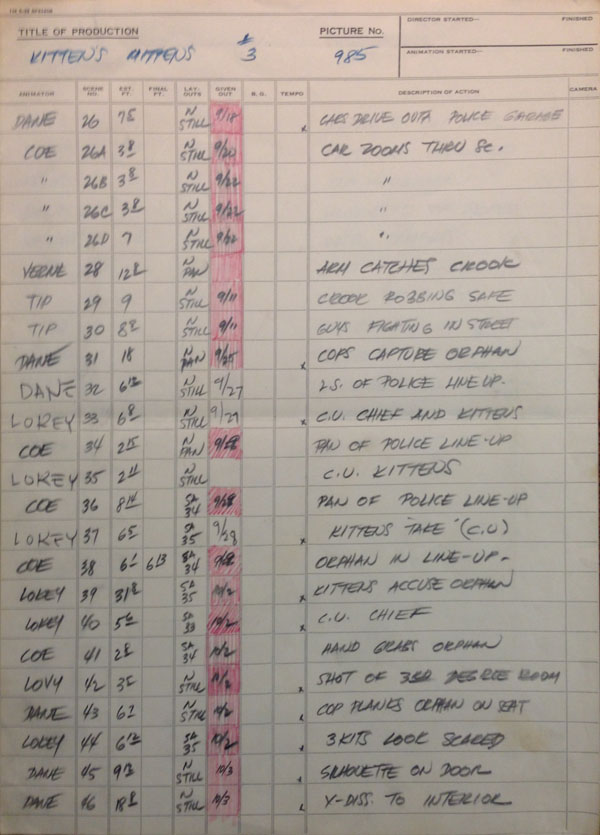 TITLE OF PRODUCTION
PICTURE No.
DIRECTOR STARTED— FINISHED
KITTEN'S MITTENS #3 985
ANIMATION STARTED— FINISHED
ANIMATOR SCENE NO. EST. FT. FINAL FT. LAY-OUTS GIVEN OUT B. G. TEMPO DESCRIPTION OF ACTION CAMERA
DANE 26 N STILL 9/18 x CARS DRIVE OUTA POLICE GARAGE
COE 26A 3 8 N STILL 9/20 CAR ZOOMS THRU SC.
" 26B 3 8 N STILL 9/22 "
" 26C 3 8 N STILL 9/22 "
" 26D 7 N STILL 9/22 "
VERNE 28 12 8 N PAN ARM CATCHES CROOK
TIP 29 9 N STILL 9/11 CROOK ROBBING SAFE
TIP 30 8 8 N STILL 9/11 GUYS FIGHTING IN STREET
DANE 31 18 N PAN 9/25 x COPS CAPTURE ORPHAN
DANE 32 6 12 N STILL 9/27 L.S. OF POLICE LINE UP.
LOKEY 33 6 8 N STILL 9/29 x C.U. CHIEF AND KITTENS
COE 34 2 15 N PAN 9/28 PAN OF POLICE LINE-UP
LOKEY 35 2 11 N STILL C.U. KITTENS
COE 36 8 14 SA 34 9/28 PAN OF POLICE LINE-UP
LOKEY 37 6 5 SA 35 9/28 x KITTENS "TAKE" (C.U)
COE 38 6 1 6 13 SA 34 9/28 ORPHAN IN LINE-UP.
LOKEY 39 31 8 SA 35 10/2 x KITTENS ACCUSE ORPHAN
LOKEY 40 SA 33 10/2 x C.U. CHIEF
COE 41 2 8 SA 34 10/2 HAND GRABS ORPHAN
LOVY 42 3 5 N STILL 10/2 x SHOT OF DEGREE ROOM
DANE 43 6 1 N STILL 10/2 x COP PLANKS ORPHAN ON SEAT
LOKEY 44 6 12 SA 35 10/2 x 3 KITS LOOK SCARED
DANE 45 9 12 N STILL 10/3 x SILHOUETTE ON DOOR
DANE 46 18 8 N STILL 10/3 Y-DISS. TO INTERIOR